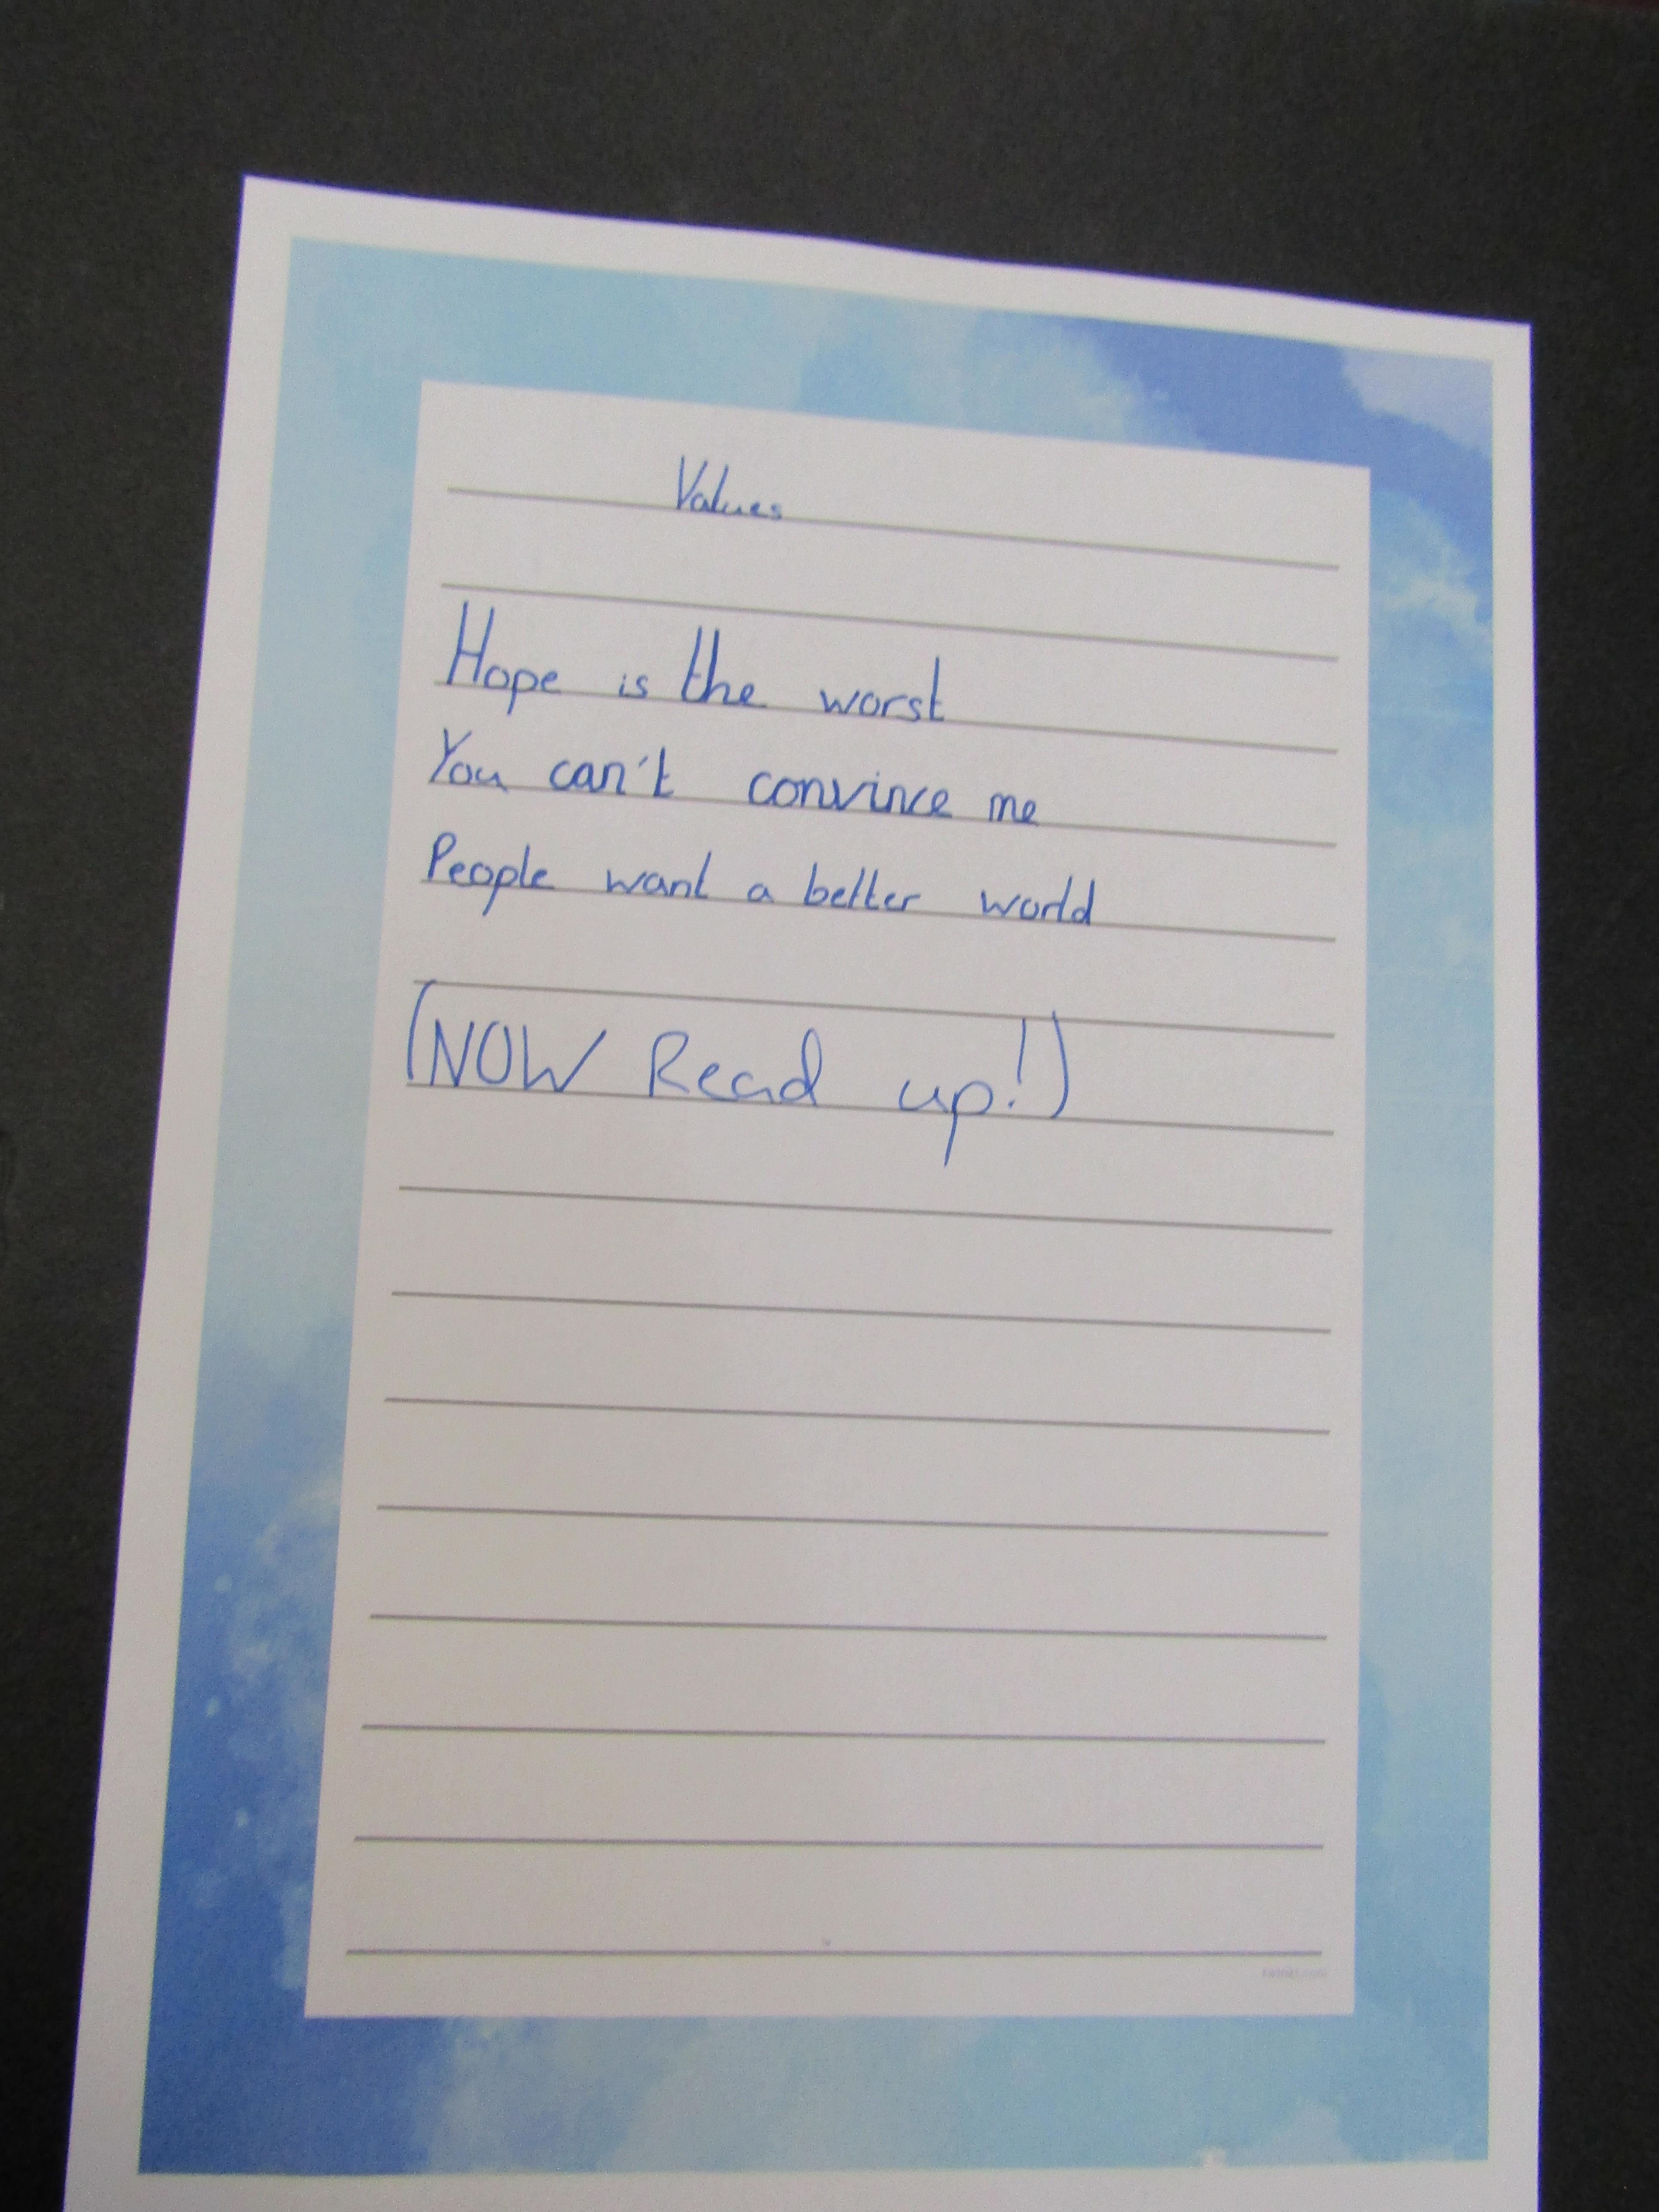 Values
Hope is the worst
You can't convince me
People want a better world
(NOW Read up!)